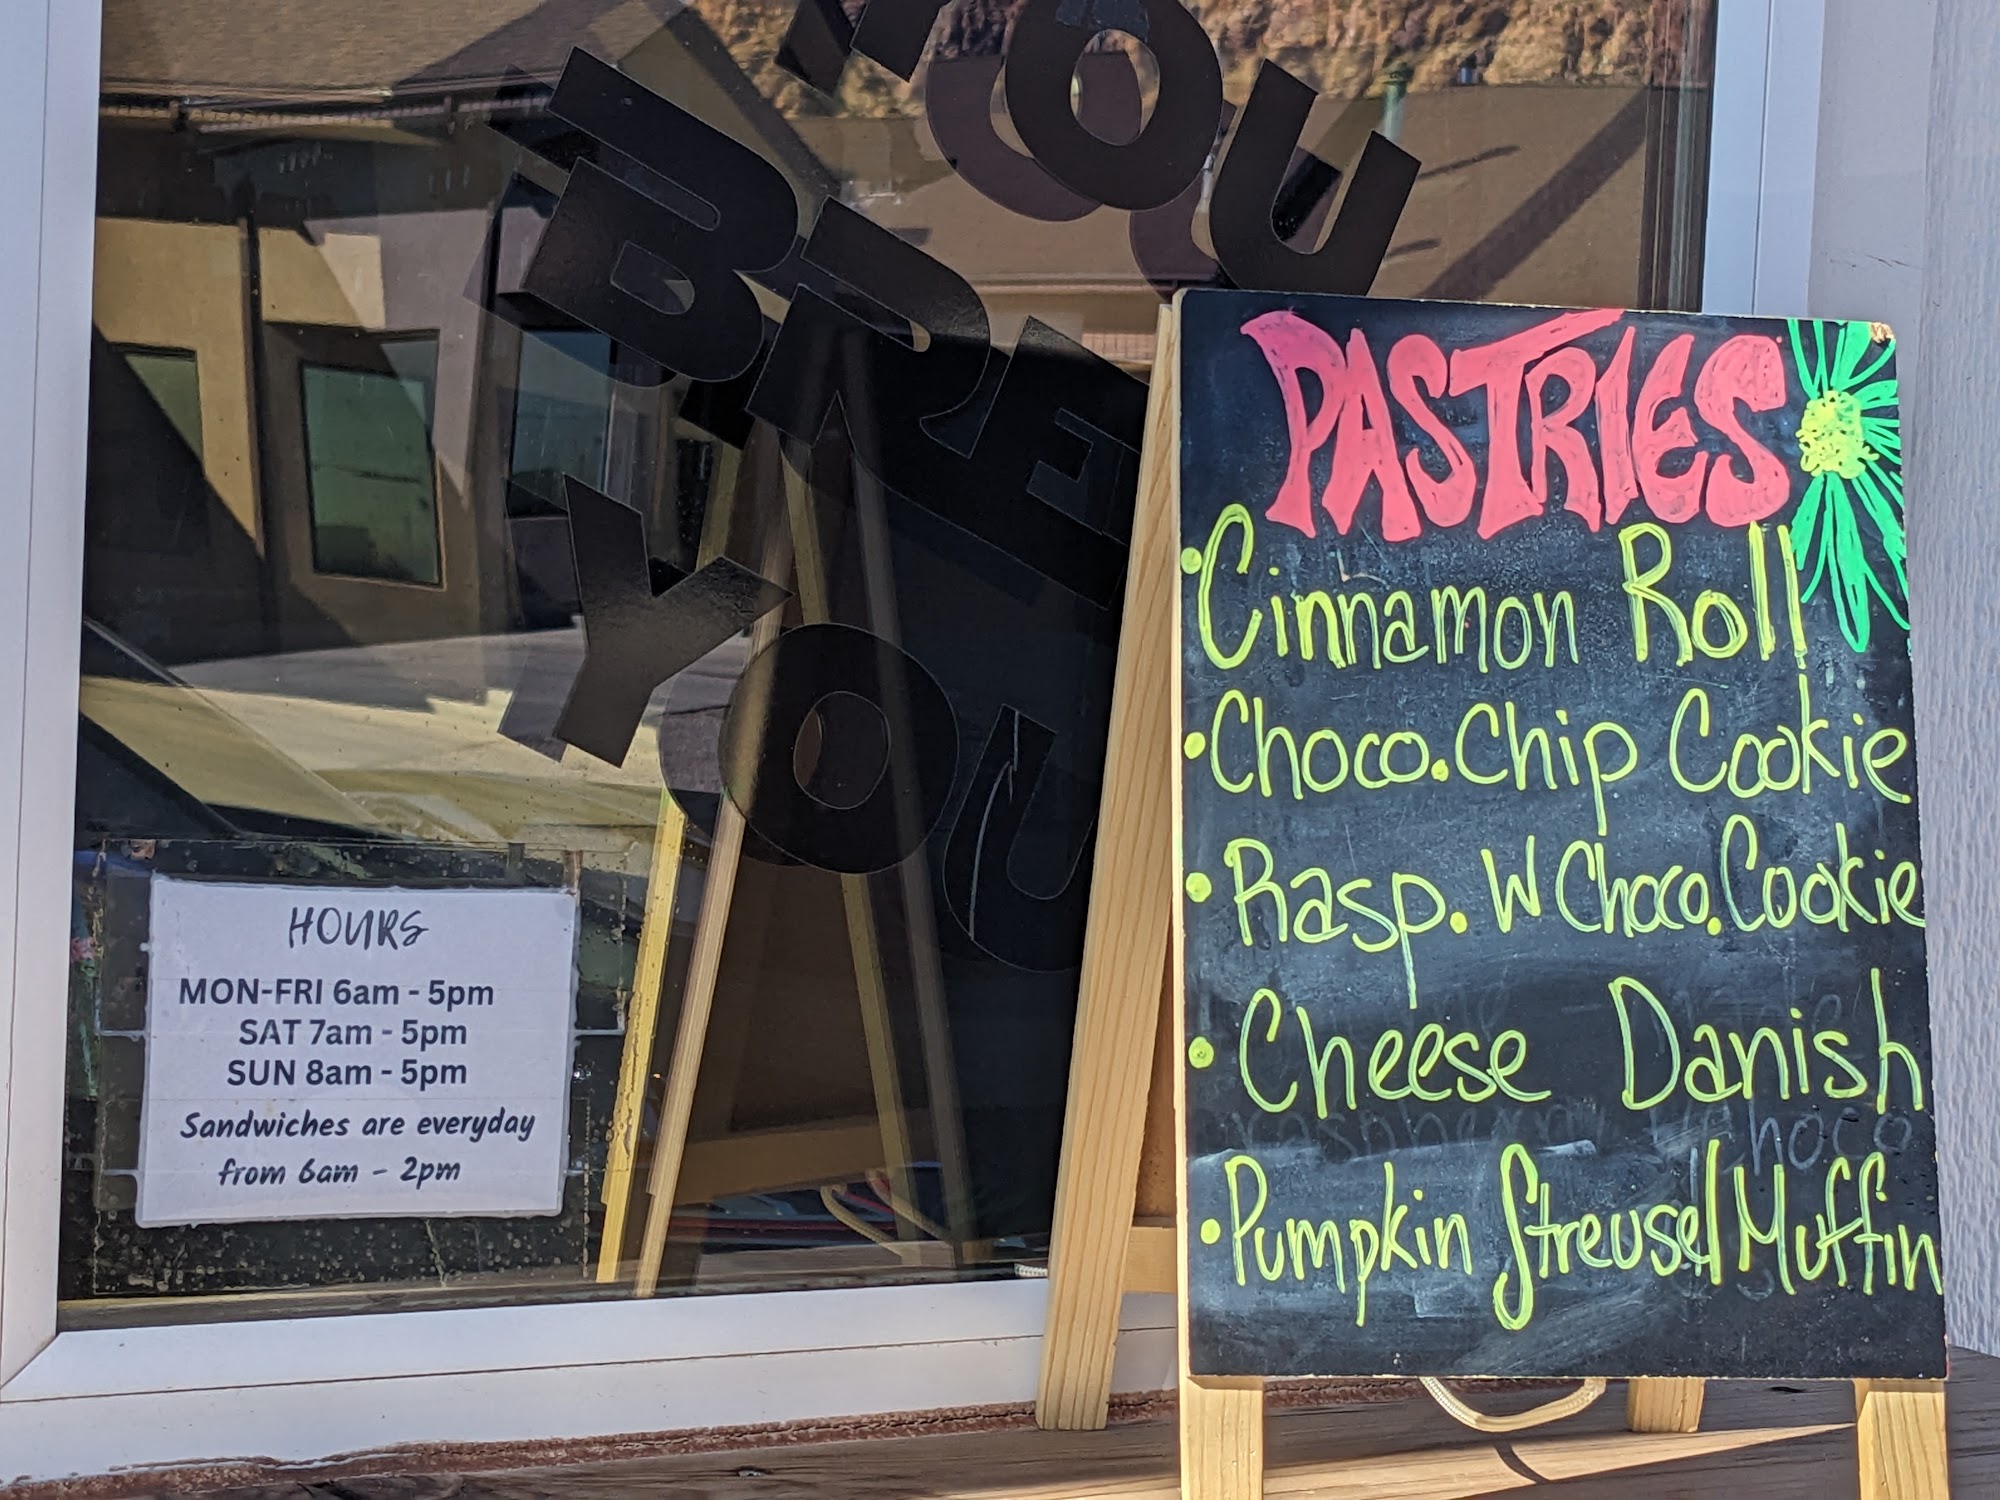 YOU
BREW
YOU
HOURS
MON-FRI 6am - 5pm
SAT 7am - 5pm
SUN 8am - 5pm
Sandwiches are everyday
from 6am - 2pm
PASTRIES
• Cinnamon Roll
• Choco. Chip Cookie
• Rasp. W Choco. Cookie
• Cheese Danish
• Pumpkin Streusel Muffin